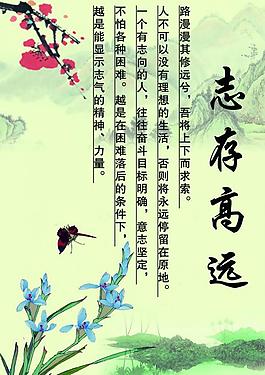 志存高远
路漫漫其修远兮，吾将上下而求索。
人不可以没有理想的生活，否则将永远停留在原地。
一个有志向的人，往往奋斗目标明确，意志坚定，
不怕各种困难。越是在困难落后的条件下，
越是能显示志气的精神、力量。